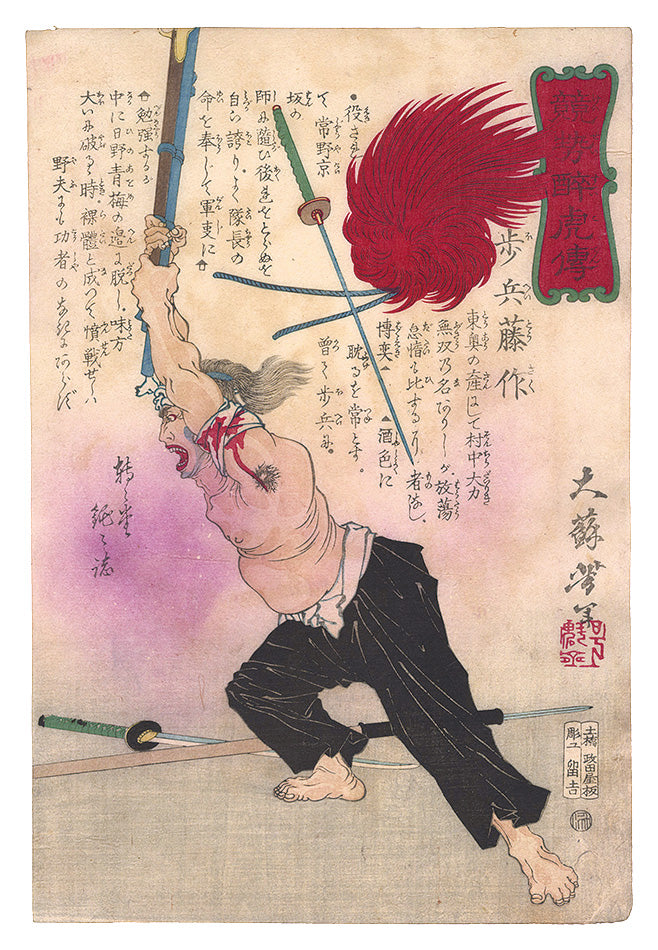 競勢醉虎傳
歩兵藤作
東奥の産にして村中大力
無双の名ありしが放蕩
怠惰に比する者なし
博奕 酒色に
耽るを常とす
曾て歩兵に
役され
て 常野京
坂の
師に隨ひ後進をとらぬを
自ら誇りよく隊長の
命を奉して軍吏に
勉強するが
中に日野青梅の邉に脱し味方
大いに破るゝ時裸體と成つて憤戦せしハ
野夫にも功者のなきにあらず
轉々堂
鈍々誌
大蘇芳年
土橋 政田屋板
彫工 留吉